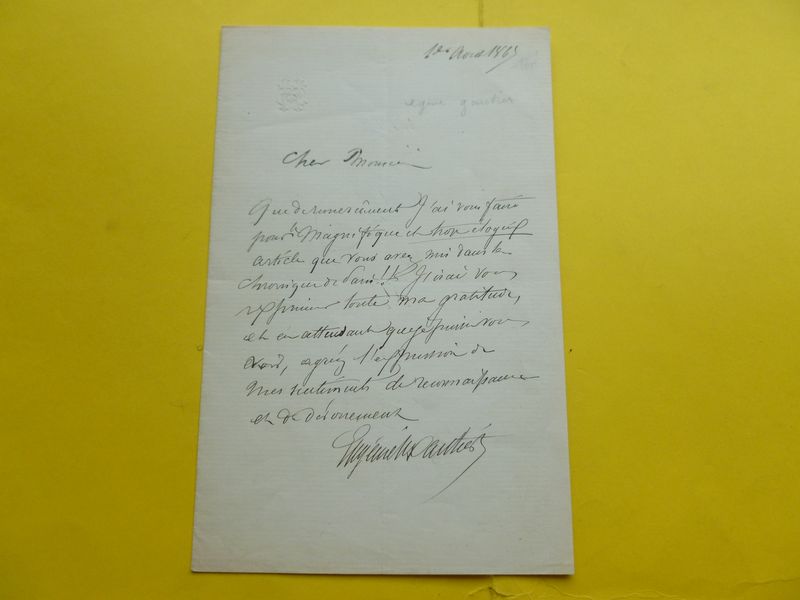 1er Avril 1865
egne gautier
Cher Monsieur
Que de remerciements J'ai à vous faire
pour Magnifique et trop élogieux
article que vous avez mis dans la
chronique de Paris!! J'irai vous
exprimer toute ma gratitude,
et en attendant que je puisse vous
voir, agréez l'expression de
mes sentiments de reconnaissance
et de dévouement
Eugène Gautier